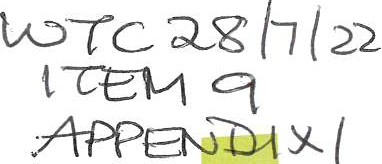 WTC 28/7/22
ITEM 9
APPENDIX 1